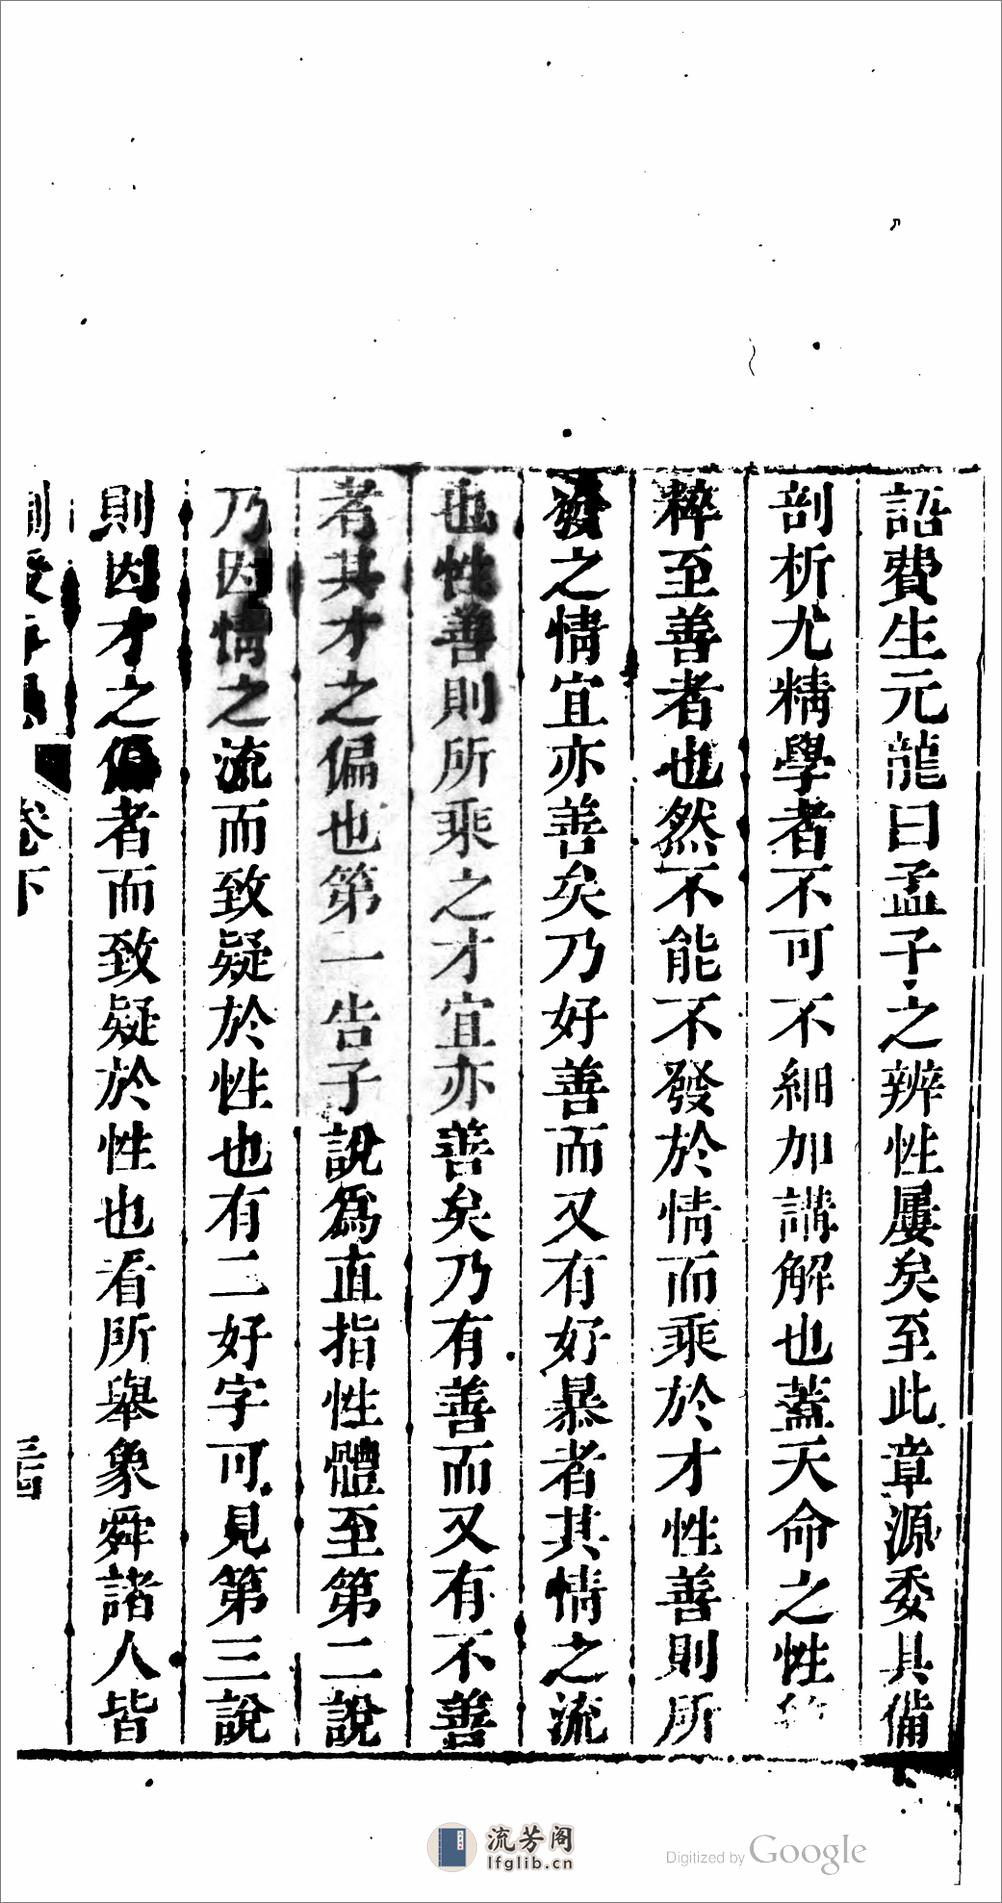 語費生元龍曰孟子之辨性屢矣至此章源委具備
剖析尤精學者不可不細加講解也蓋天命之性
粹至善者也然不能不發於情而乘於才性善則所
發之情宜亦善矣乃好善而又有好暴者其情之流
也性善則所乘之才宜亦善矣乃有善而又有不善
者其才之偏也第一告子說爲直指性體至第二說
乃因情之流而致疑於性也有二好字可見第三說
則因才之偏者而致疑於性也看所舉象舜諸人皆
卷下
流芳阁
lfglib.cn
Digitized by Google